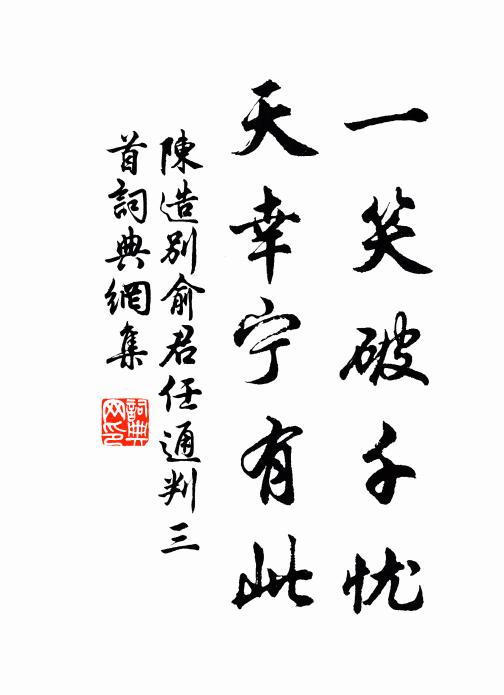 一笑破千忧
天幸宁有此
陳造别俞君任通判三
首詞典網集
詞典
网印